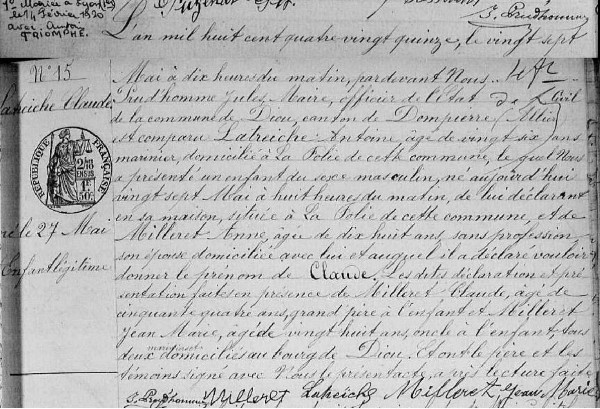 1° Mariée à Lyon
le 14 Février 1920
avec
TRIOMPHE.
J. Prudhomme
L'an mil huit cent quatre vingt quinze, le vingt sept
N° 15
Mai à dix heures du matin, par devant Nous
Latreiche Claude
Prudhomme Jules, Maire, officier de l'état Civil
de la commune de Diou, canton de Dompierre (Allier)
est comparu Latreiche Antoine âgé de vingt six ans
marinier, domicilié à La Folie de cette commune, lequel Nous
a présenté un enfant du sexe masculin, né aujourd'hui
vingt sept Mai à huit heures du matin, de lui déclarant
en sa maison, située à La Folie de cette commune, et de
Milleret Anne, âgée de dix huit ans, sans profession
son épouse domiciliée avec lui et auquel il a déclaré vouloir
donner le prénom de Claude. Les dites déclaration et pré
sentation faites en présence de Milleret Claude, âgé de
cinquante quatre ans, grand père à l'enfant et Milleret
Jean Marie, âgé de vingt huit ans, oncle à l'enfant, tous
deux domiciliés au bourg de Diou. Et ont le père et les
témoins signé avec Nous le présent acte, après lecture faite
RÉPUBLIQUE FRANÇAISE
2/10
EN SUS
1F
50c
né le 27 Mai
Enfant légitime
J. Prudhomme Milleret Latreiche Milleret Jean Marie